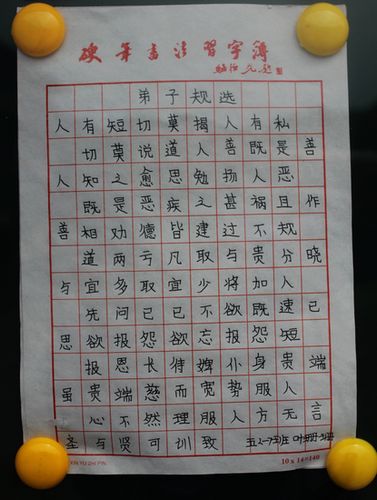 硬笔书法習字簿
弟子规选
人有短切莫揭人有私
切莫说道人善既是善
人知之愈思勉扬人恶
既是恶疾之甚祸且作
善相劝德皆建过不规
道两亏凡取与贵分晓
与宜多取宜少将加人
先问已已不欲既速已
思欲报怨欲忘报怨短
报恩长待婢仆身贵端
虽贵端慈而宽势服人
心不然理服人方无言
圣与贤可训致 五2-7班
XIN YU ZHI PIN
10x14=140